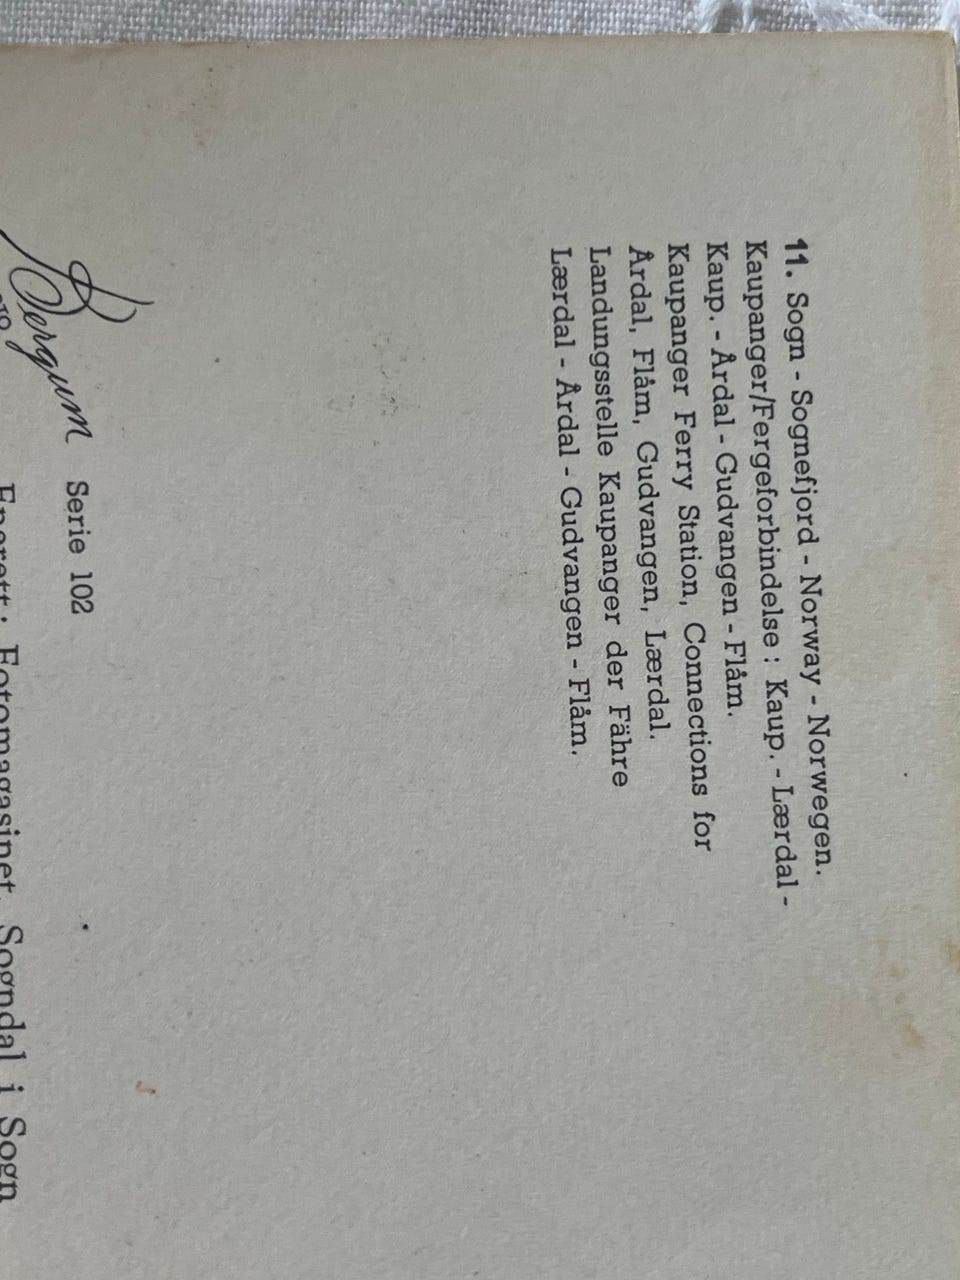 11. Sogn - Sognefjord - Norway - Norwegen.
Kaupanger/Fergeforbindelse : Kaup. - Lærdal -
Kaup. - Årdal - Gudvangen - Flåm.
Kaupanger Ferry Station, Connections for
Årdal, Flåm, Gudvangen, Lærdal.
Landungsstelle Kaupanger der Fähre
Lærdal - Årdal - Gudvangen - Flåm.
Bergum Serie 102
Enerett: Fotomagasinet, Sogndal i Sogn